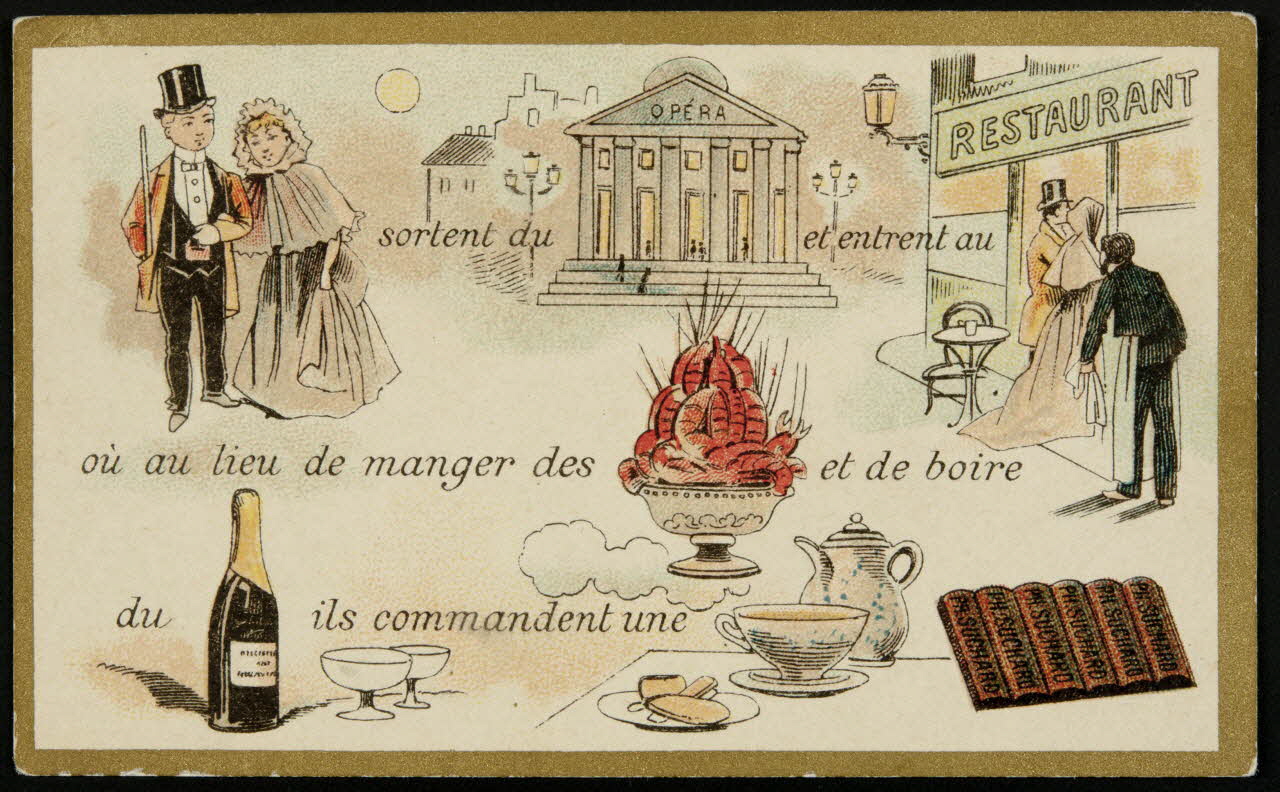 OPÉRA
RESTAURANT
sortent du
et entrent au
où au lieu de manger des
et de boire
du
ils commandent une
PH.SUCHARD
PH.SUCHARD
PH.SUCHARD
PH.SUCHARD
PH.SUCHARD
PH.SUCHARD